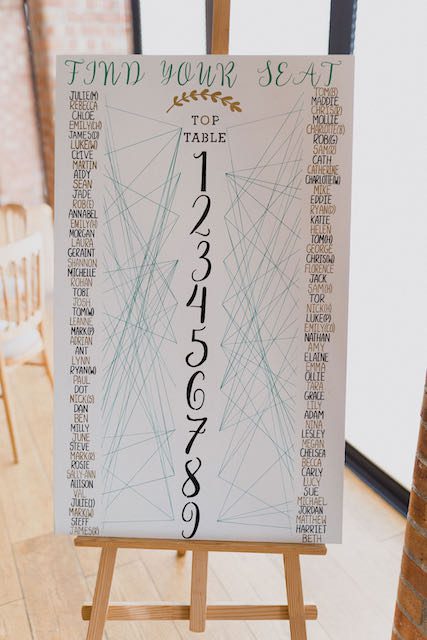 FIND YOUR SEAT
JULIE(M)
REBECCA
CHLOE
EMILY(CH)
JAMES(D)
LUKE(W)
CLIVE
MARTIN
AIDY
SEAN
JADE
ROB(E)
ANNABEL
EMILY(H)
MORGAN
LAURA
GERAINT
SHANNON
MICHELLE
ROHAN
TOBI
JOSH
TOM(W)
LEANNE
MARK(P)
ADRIAN
ANT
LYNN
RYAN(W)
PAUL
DOT
NICK(S)
DAN
BEN
MILLY
JUNE
STEVE
MARK(R)
ROSIE
SALLY-ANN
ALLISON
VAL
JULIE(I)
MARK(W)
STEFF
JAMES(R)
TOP
TABLE
1
2
3
4
5
6
7
8
9
TOM(B)
MADDIE
CHRIS(D)
MOLLIE
CHARLOTTE(B)
ROB(G)
SAM(R)
CATH
CATHERINE
CHARLOTTE(W)
MIKE
EDDIE
RYAN(D)
KATIE
HELEN
TOM(H)
GEORGE
CHRIS(W)
FLORENCE
JACK
SAM(H)
TOR
NICK(H)
LUKE(P)
EMILY(CO)
NATHAN
AMY
ELAINE
EMMA
OLLIE
TARA
GRACE
LILY
ADAM
NINA
LESLEY
MEGAN
CHELSEA
BECCA
CARLY
LUCY
SUE
MICHAEL
JORDAN
MATTHEW
HARRIET
BETH